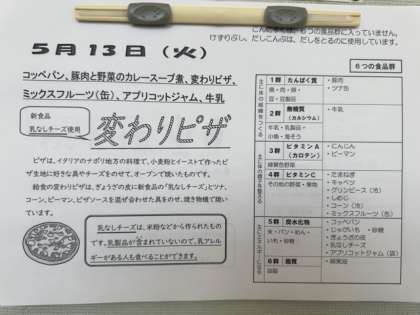 に入っていません。
けずりぶし、だしこんぶは、だしをとるのに使用しています。
5月13日（火）
コッペパン、豚肉と野菜のカレースープ煮、変わりピザ、
ミックスフルーツ（缶）、アプリコットジャム、牛乳
新食品
乳なしチーズ使用
変わりピザ
ピザは、イタリアのナポリ地方の料理で、小麦粉とイーストで作ったピ
ザ生地に好きな具やチーズをのせて、オーブンで焼いたものです。
給食の変わりピザは、ぎょうざの皮に新食品の「乳なしチーズ」とツナ、
コーン、ピーマン、ピザソースを混ぜ合わせた具をのせ、焼き物機で焼い
ています。
乳なしチーズは、米粉などから作られたもの
です。乳製品が含まれていないので、乳アレル
ギーがある人も食べることができます。
6つの食品群
1群 たんぱく質
魚・肉・卵・
豆・豆製品
・豚肉
・ツナ缶
2群 無機質
（カルシウム）
牛乳・乳製品・
小魚・海そう
・牛乳
3群 ビタミンA
（カロテン）
緑黄色野菜
・にんじん
・ピーマン
4群 ビタミンC
その他の野菜・果物
・たまねぎ
・キャベツ
・グリンピース（冷）
・しめじ
・コーン（冷）
・ミックスフルーツ（缶）
5群 炭水化物
米・パン・めん・
いも・砂糖
・コッペパン
・じゃがいも ・砂糖
・ぎょうざの皮
・乳なしチーズ
・アプリコットジャム（袋）
6群 脂質
油脂